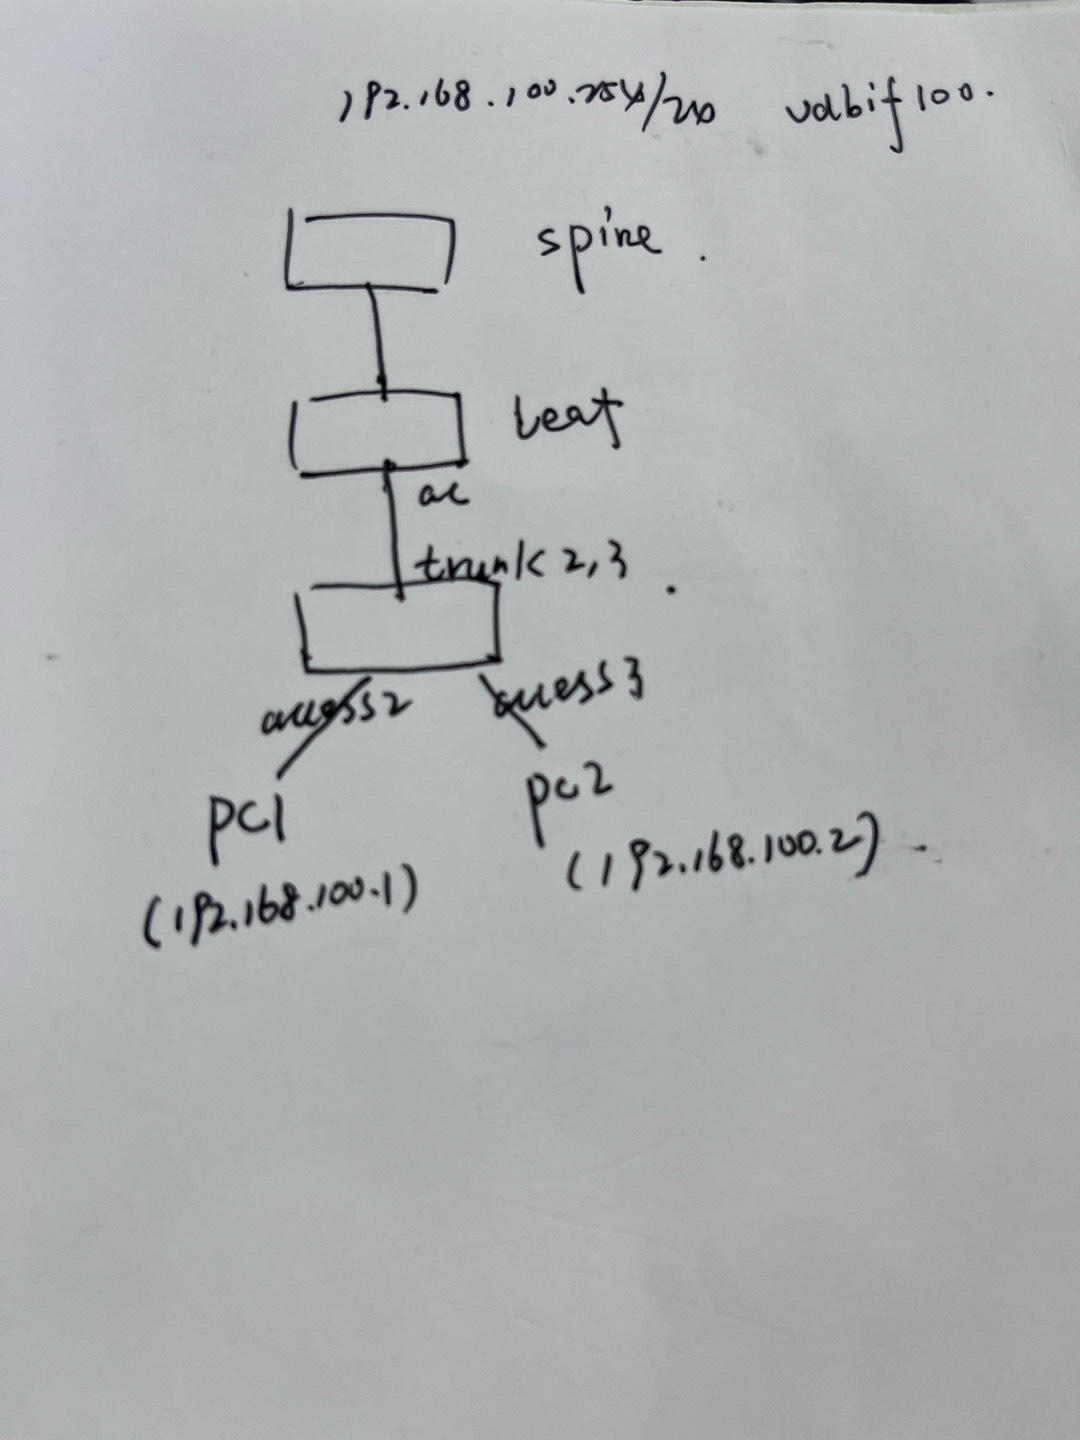 192.168.100.254/24 vdbif100.
spine.
leaf
ac
trunk 2,3
access2
access3
pc1
pc2
(192.168.100.1)
(192.168.100.2)